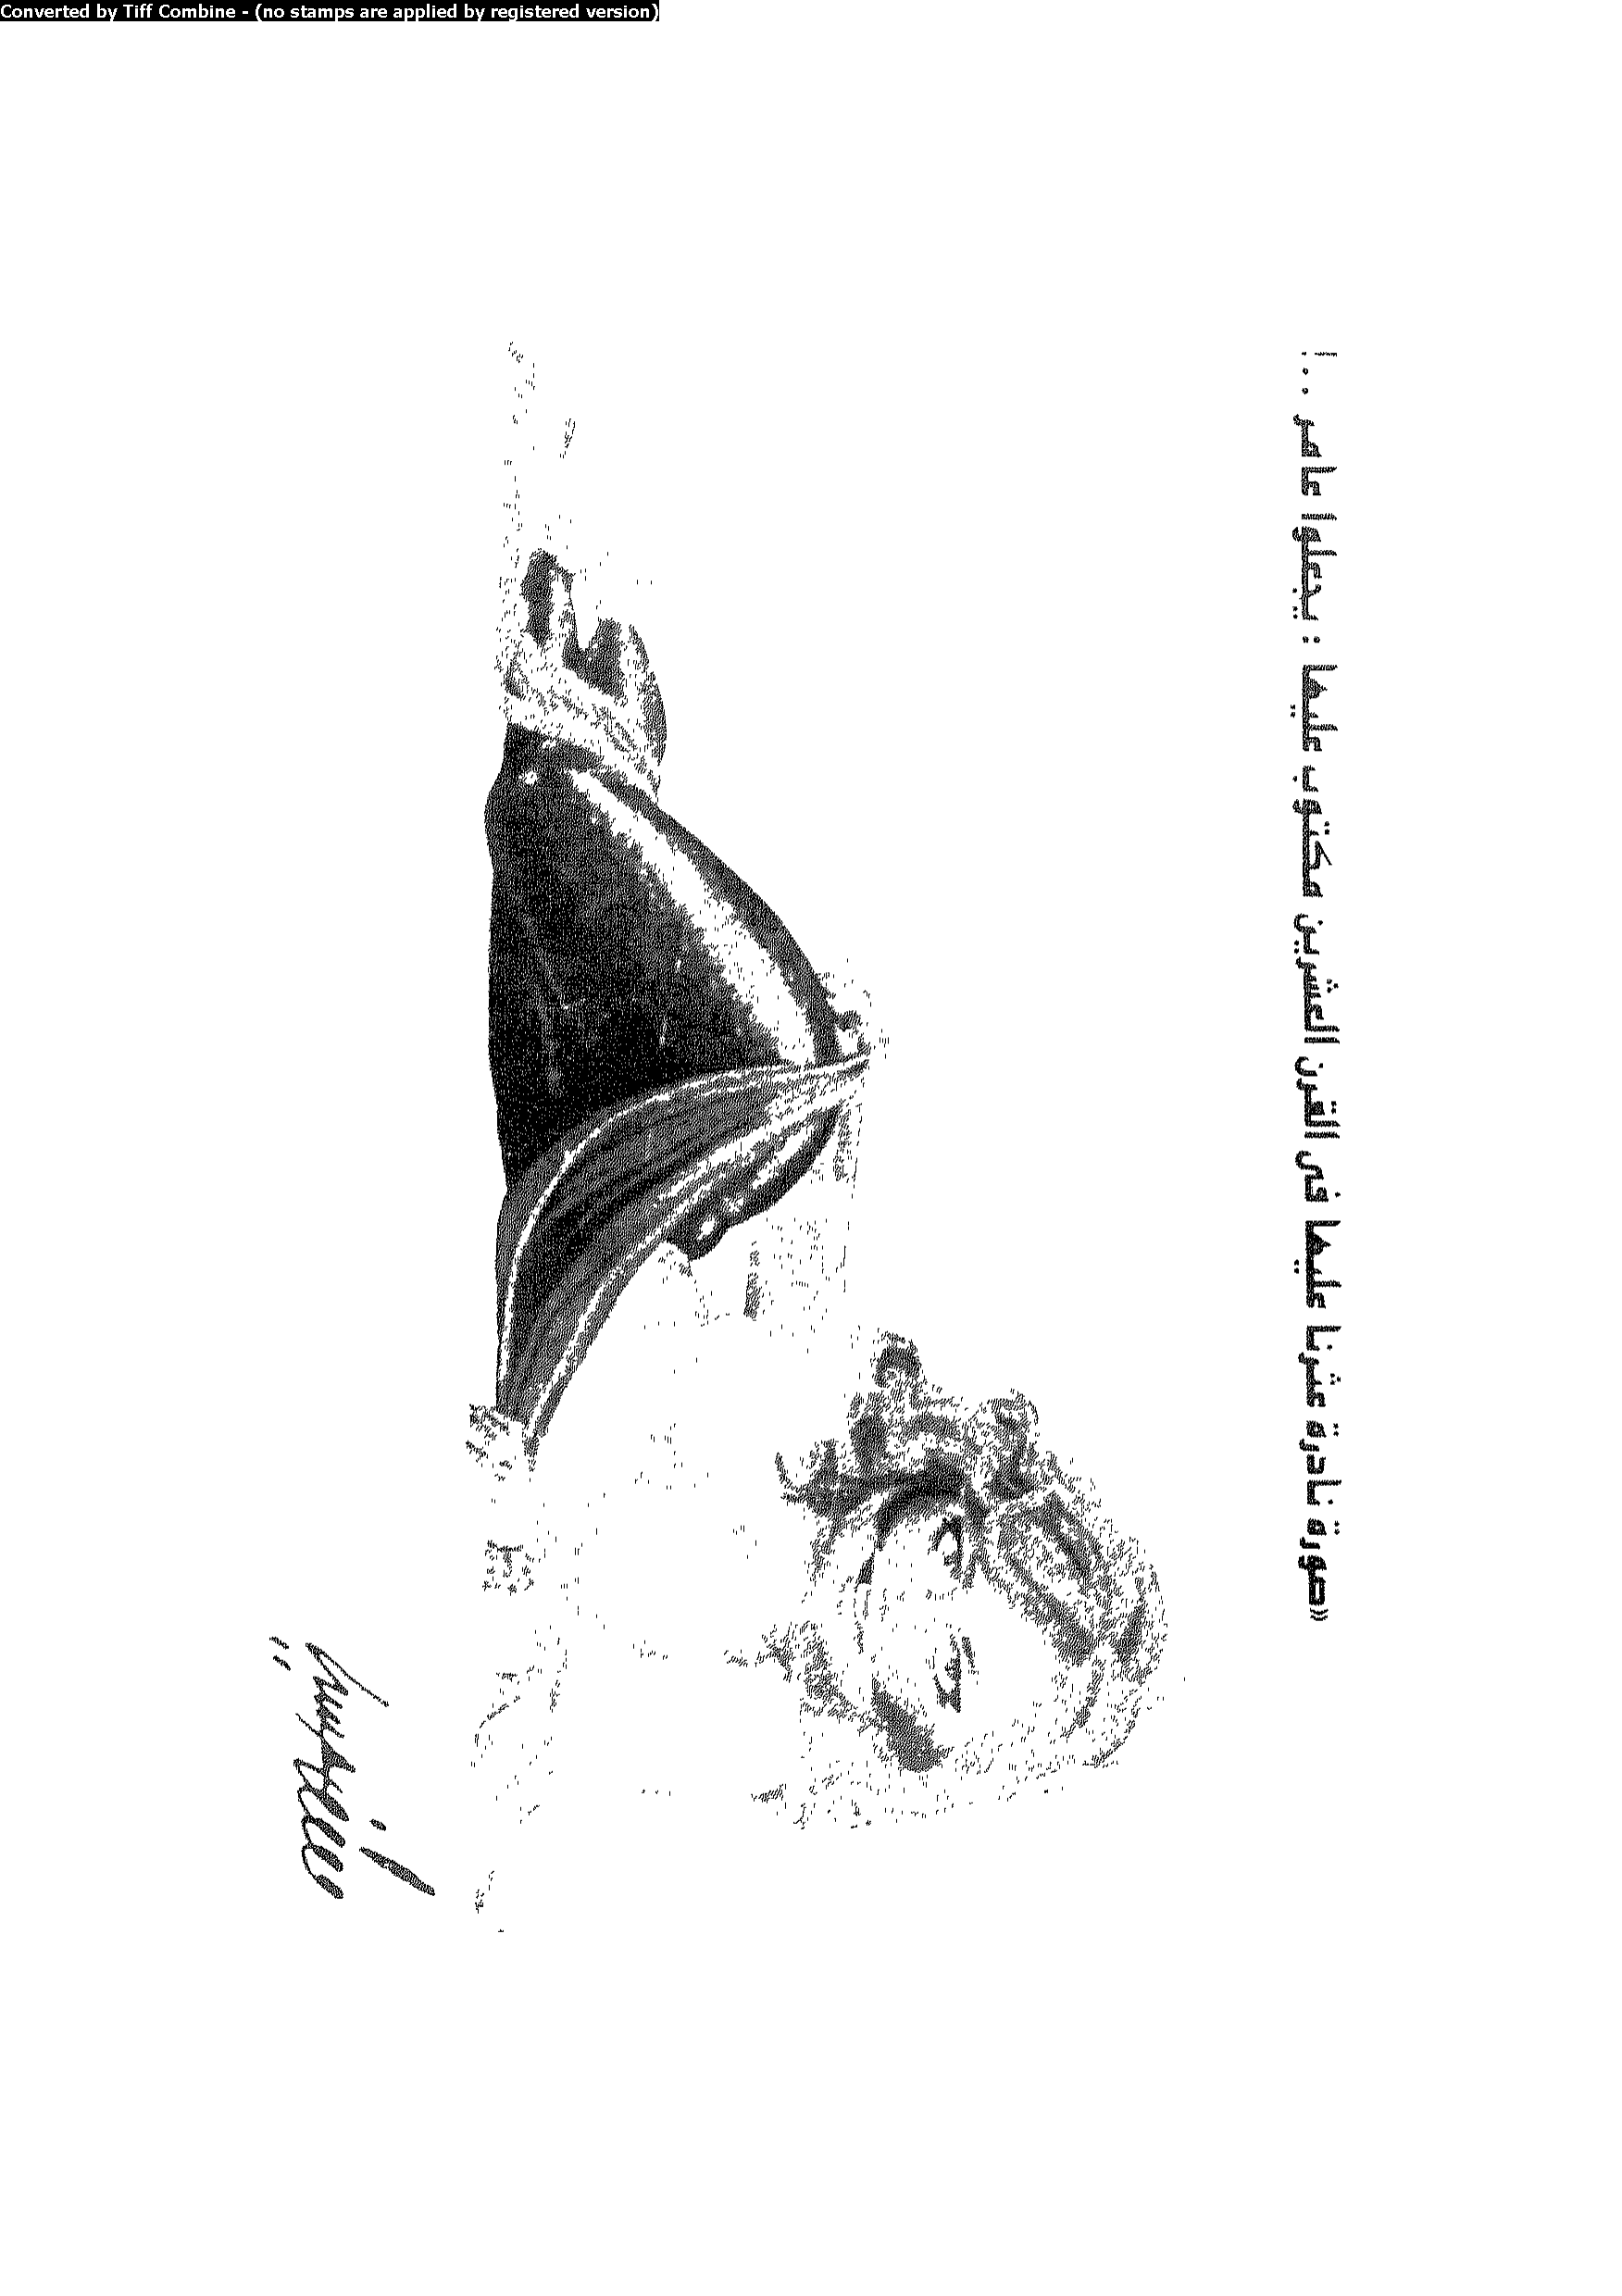 Converted by Tiff Combine - (no stamps are applied by registered version)
«صورة نادرة عثرنا عليها فى القرن العشرين مكتوب عليها : يجعلوا عامر ..!